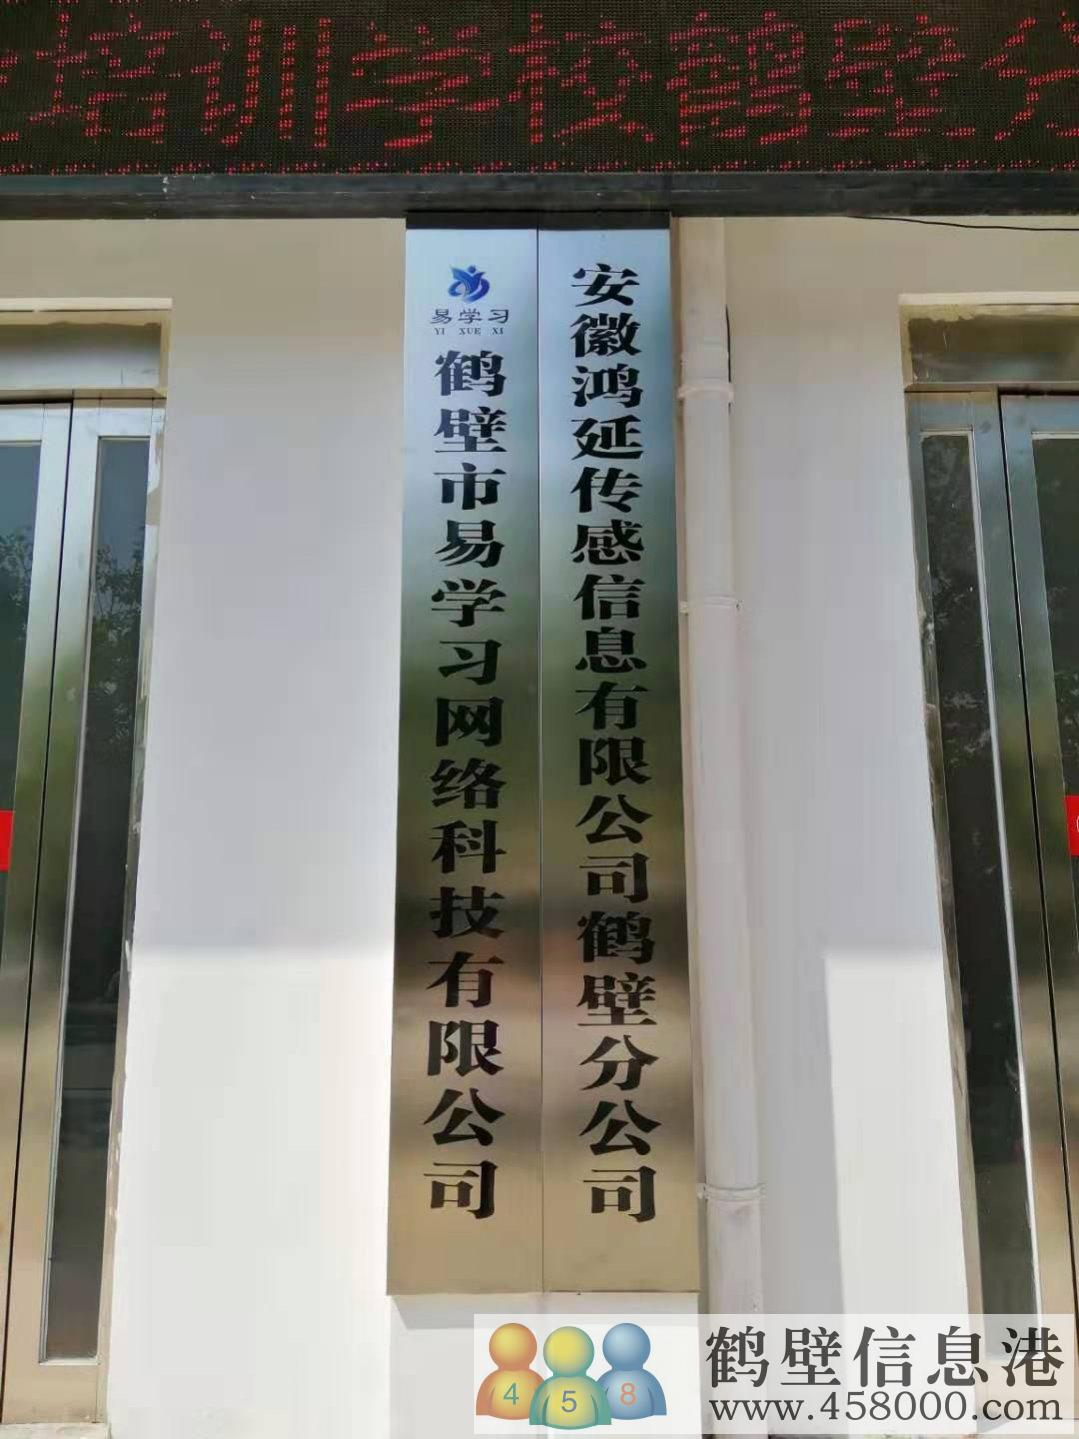 培训学校鹤壁分
易学习
YI XUE XI
鹤壁市易学习网络科技有限公司
安徽鸿延传感信息有限公司鹤壁分公司
4 5 8
鹤壁信息港
www.458000.com